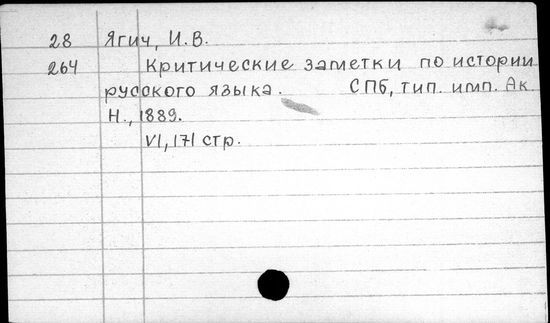 28 Ягич, И.В.
264 Критические заметки по истории
русского языка. СПб, тип. имп. Ак.
Н., 1889.
VI, 171 стр.